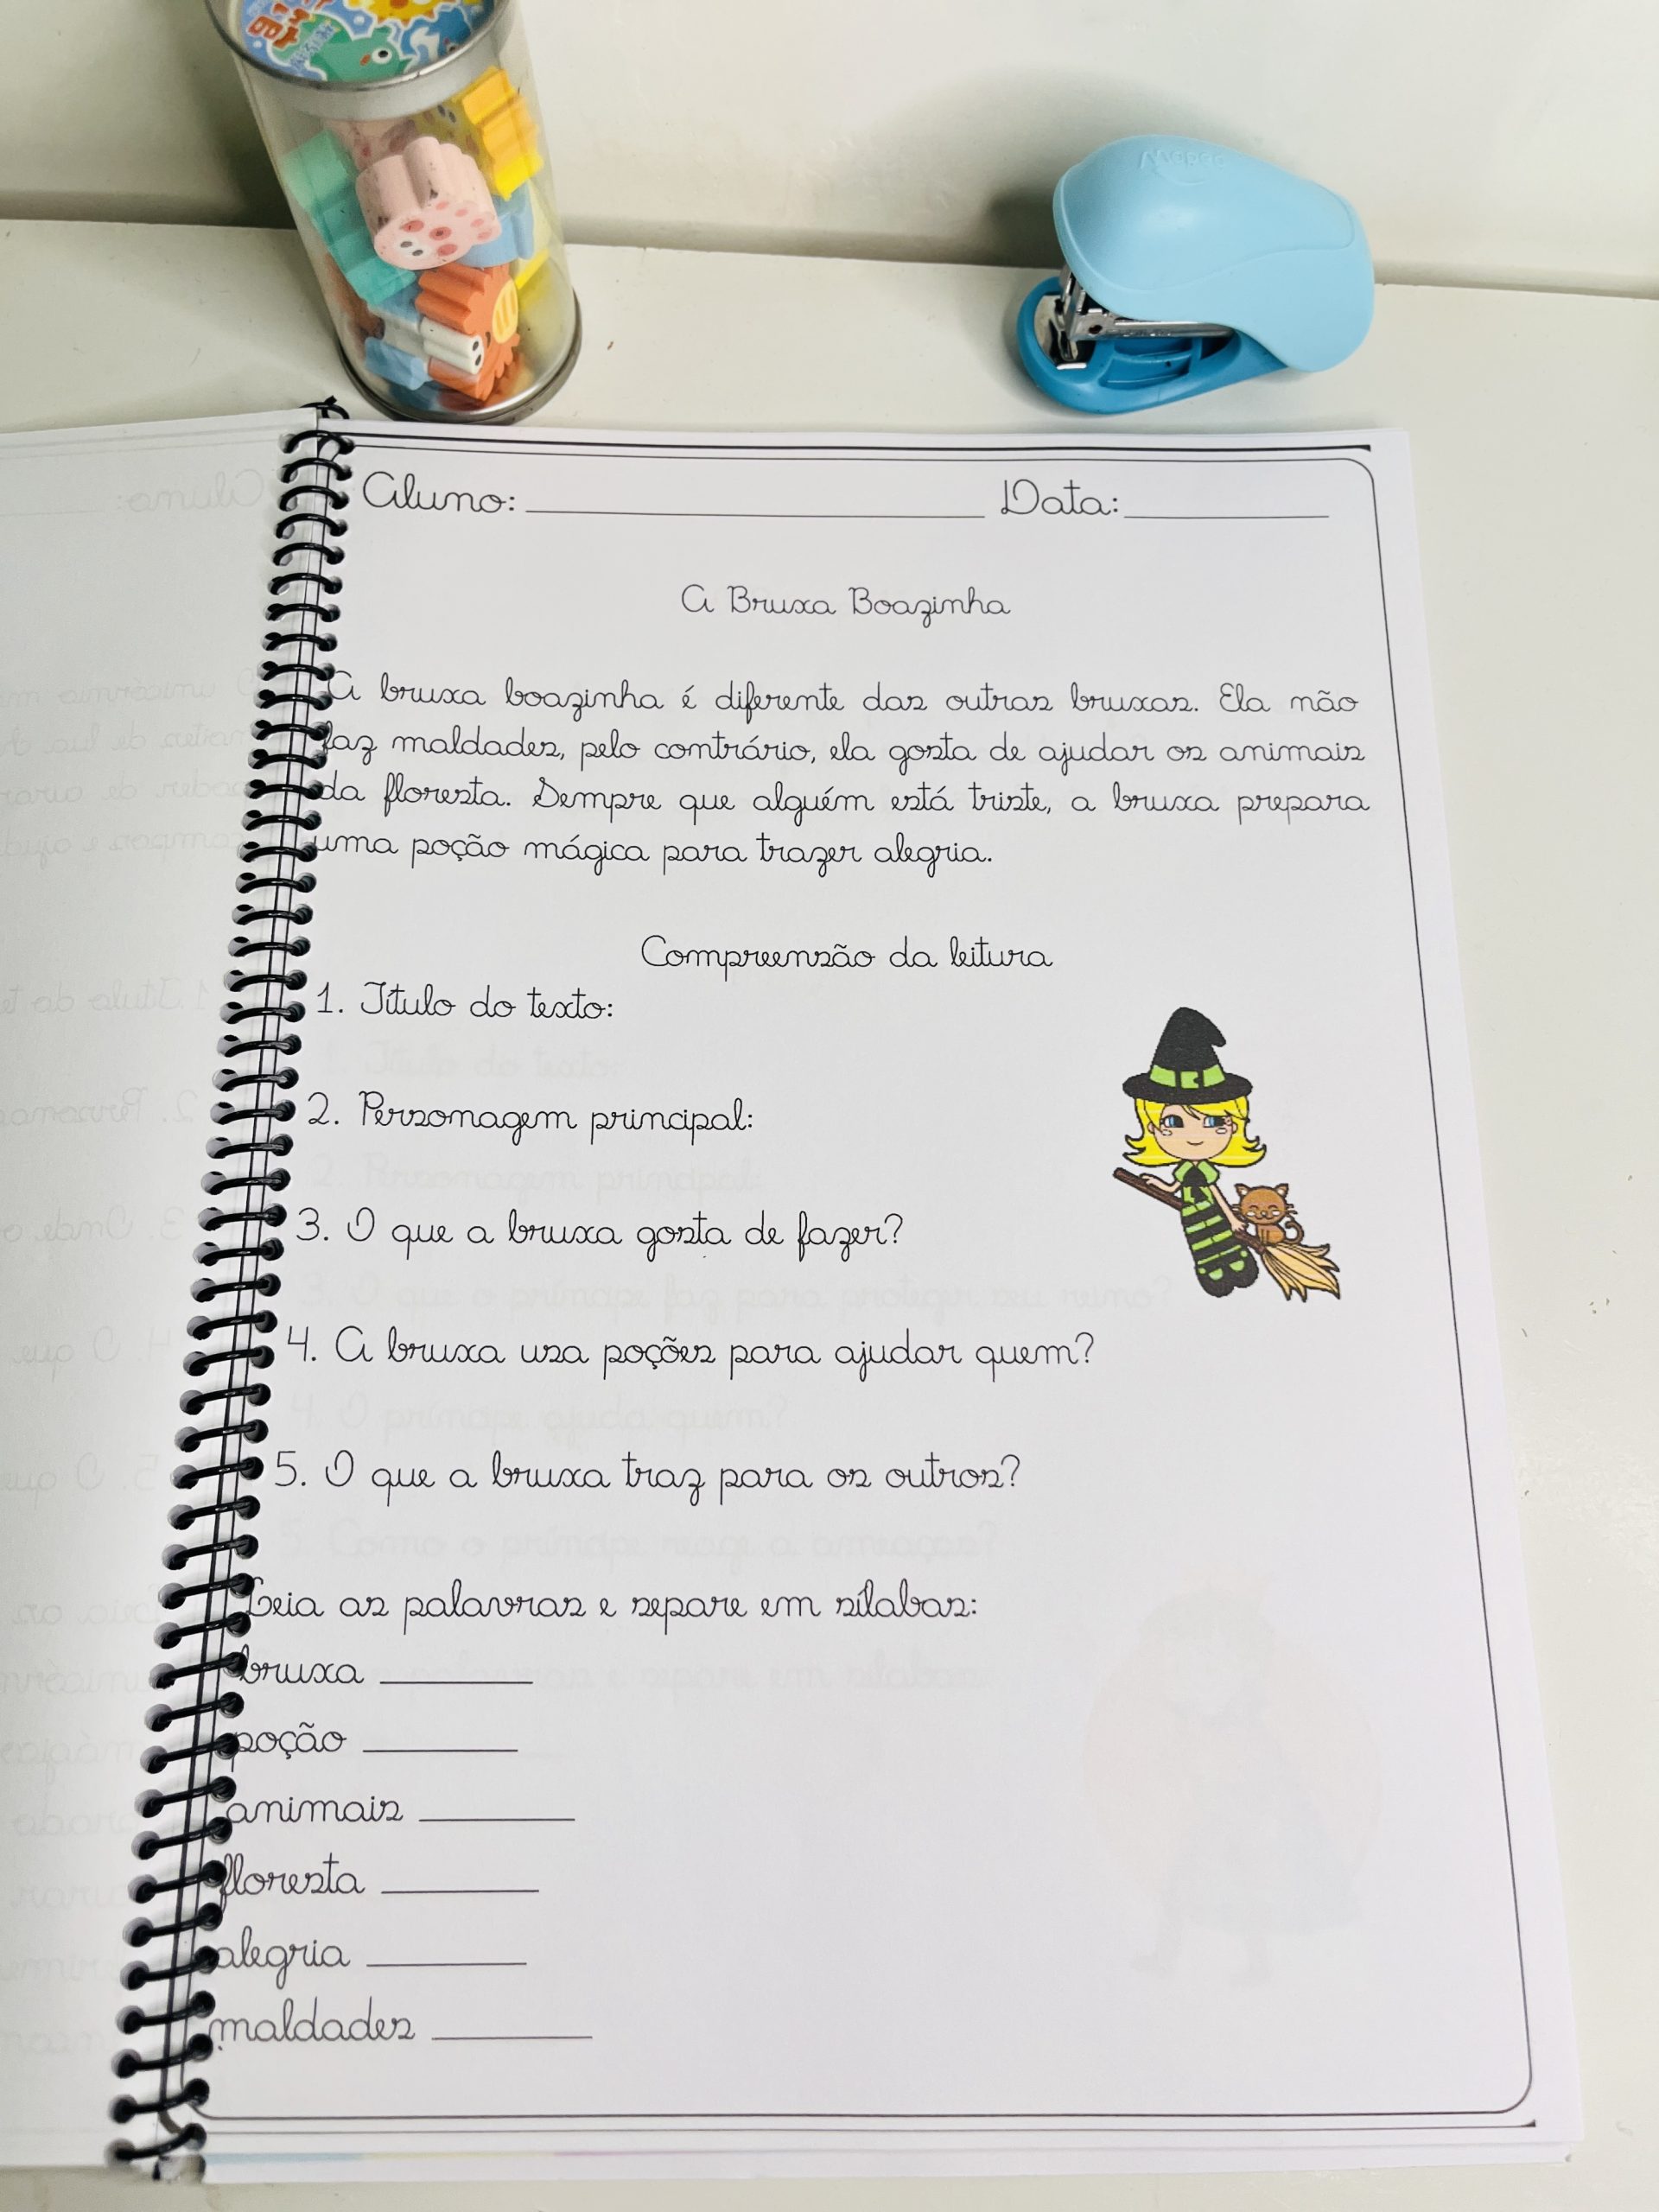 Maped
Aluno: ____________ Data: ________
A Bruxa Boazinha
A bruxa boazinha é diferente das outras bruxas. Ela não
faz maldades, pelo contrário, ela gosta de ajudar os animais
da floresta. Sempre que alguém está triste, a bruxa prepara
uma poção mágica para trazer alegria.
Compreensão da leitura
1. Título do texto:
2. Personagem principal:
3. O que a bruxa gosta de fazer?
4. A bruxa usa poções para ajudar quem?
5. O que a bruxa traz para os outros?
Leia as palavras e separe em sílabas:
bruxa ________
poção ________
animais ________
floresta ________
alegria ________
maldades ________